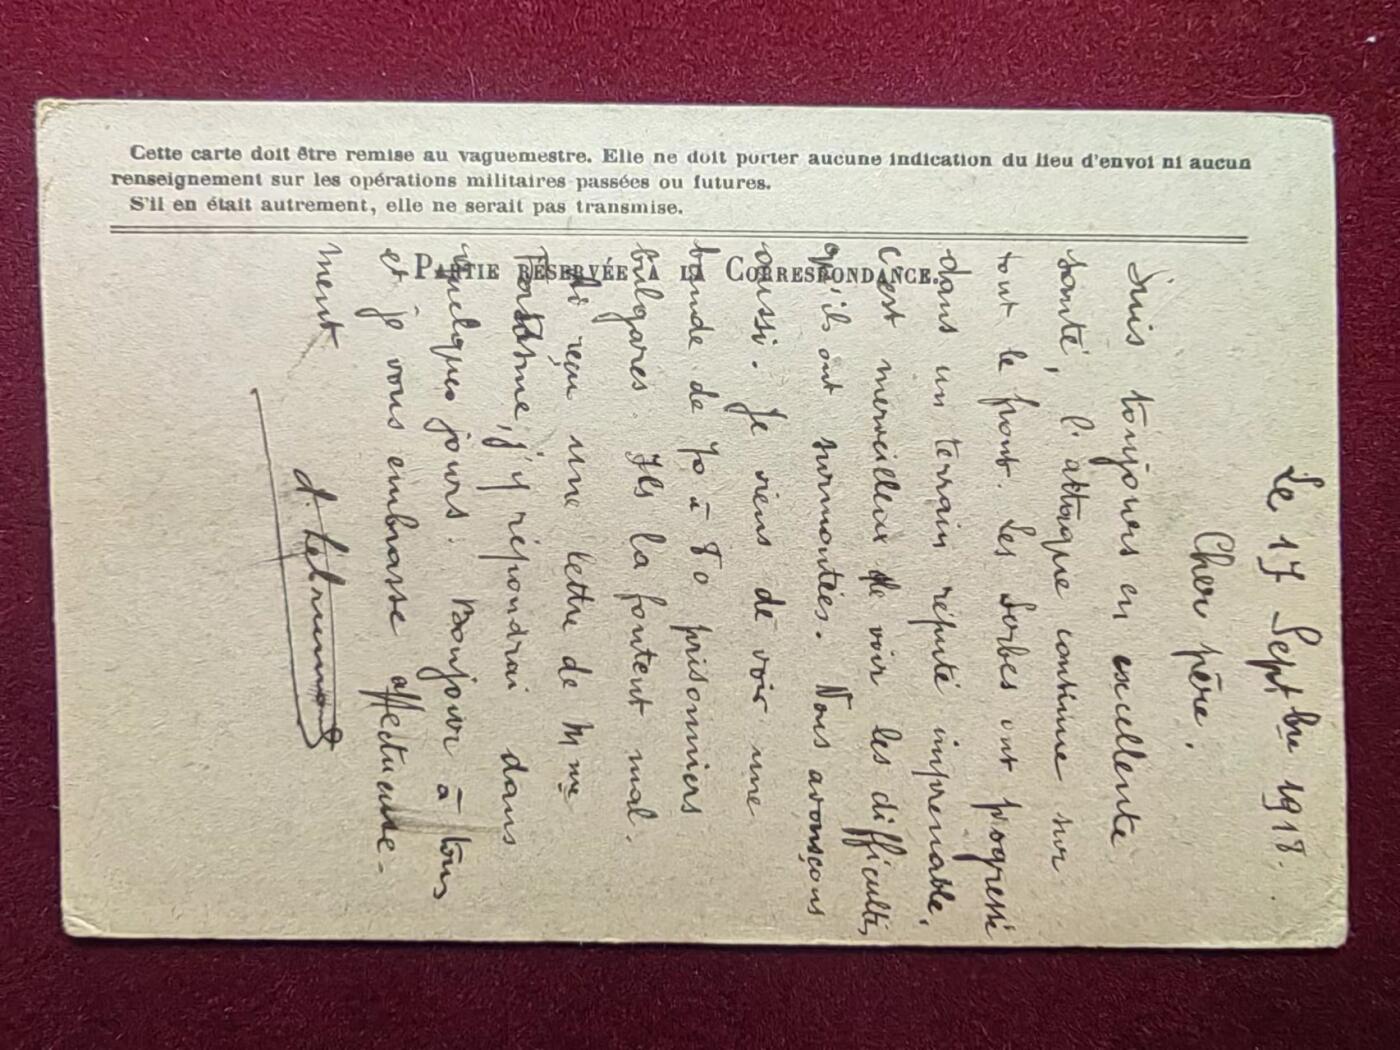 Cette carte doit être remise au vaguemestre. Elle ne doit porter aucune indication du lieu d'envoi ni aucun
renseignement sur les opérations militaires passées ou futures.
S'il en était autrement, elle ne serait pas transmise.
PARTIE RÉSERVÉE A LA CORRESPONDANCE.
Le 17 Septbre 1918.
Cher père.
Suis toujours en excellente
santé, l'attaque continue sur
tout le front. Les Serbes ont progressé
dans un terrain réputé imprenable,
c'est merveilleux de voir les difficultés
qu'ils ont surmontées. Nous avançons
aussi. Je viens de voir une
bande de 70 à 80 prisonniers
bulgares. Ils la foutent mal.
Ai reçu une lettre de Mme
j'y répondrai dans
quelques jours. Bonjour à tous
et je vous embrasse affectueuse-
ment